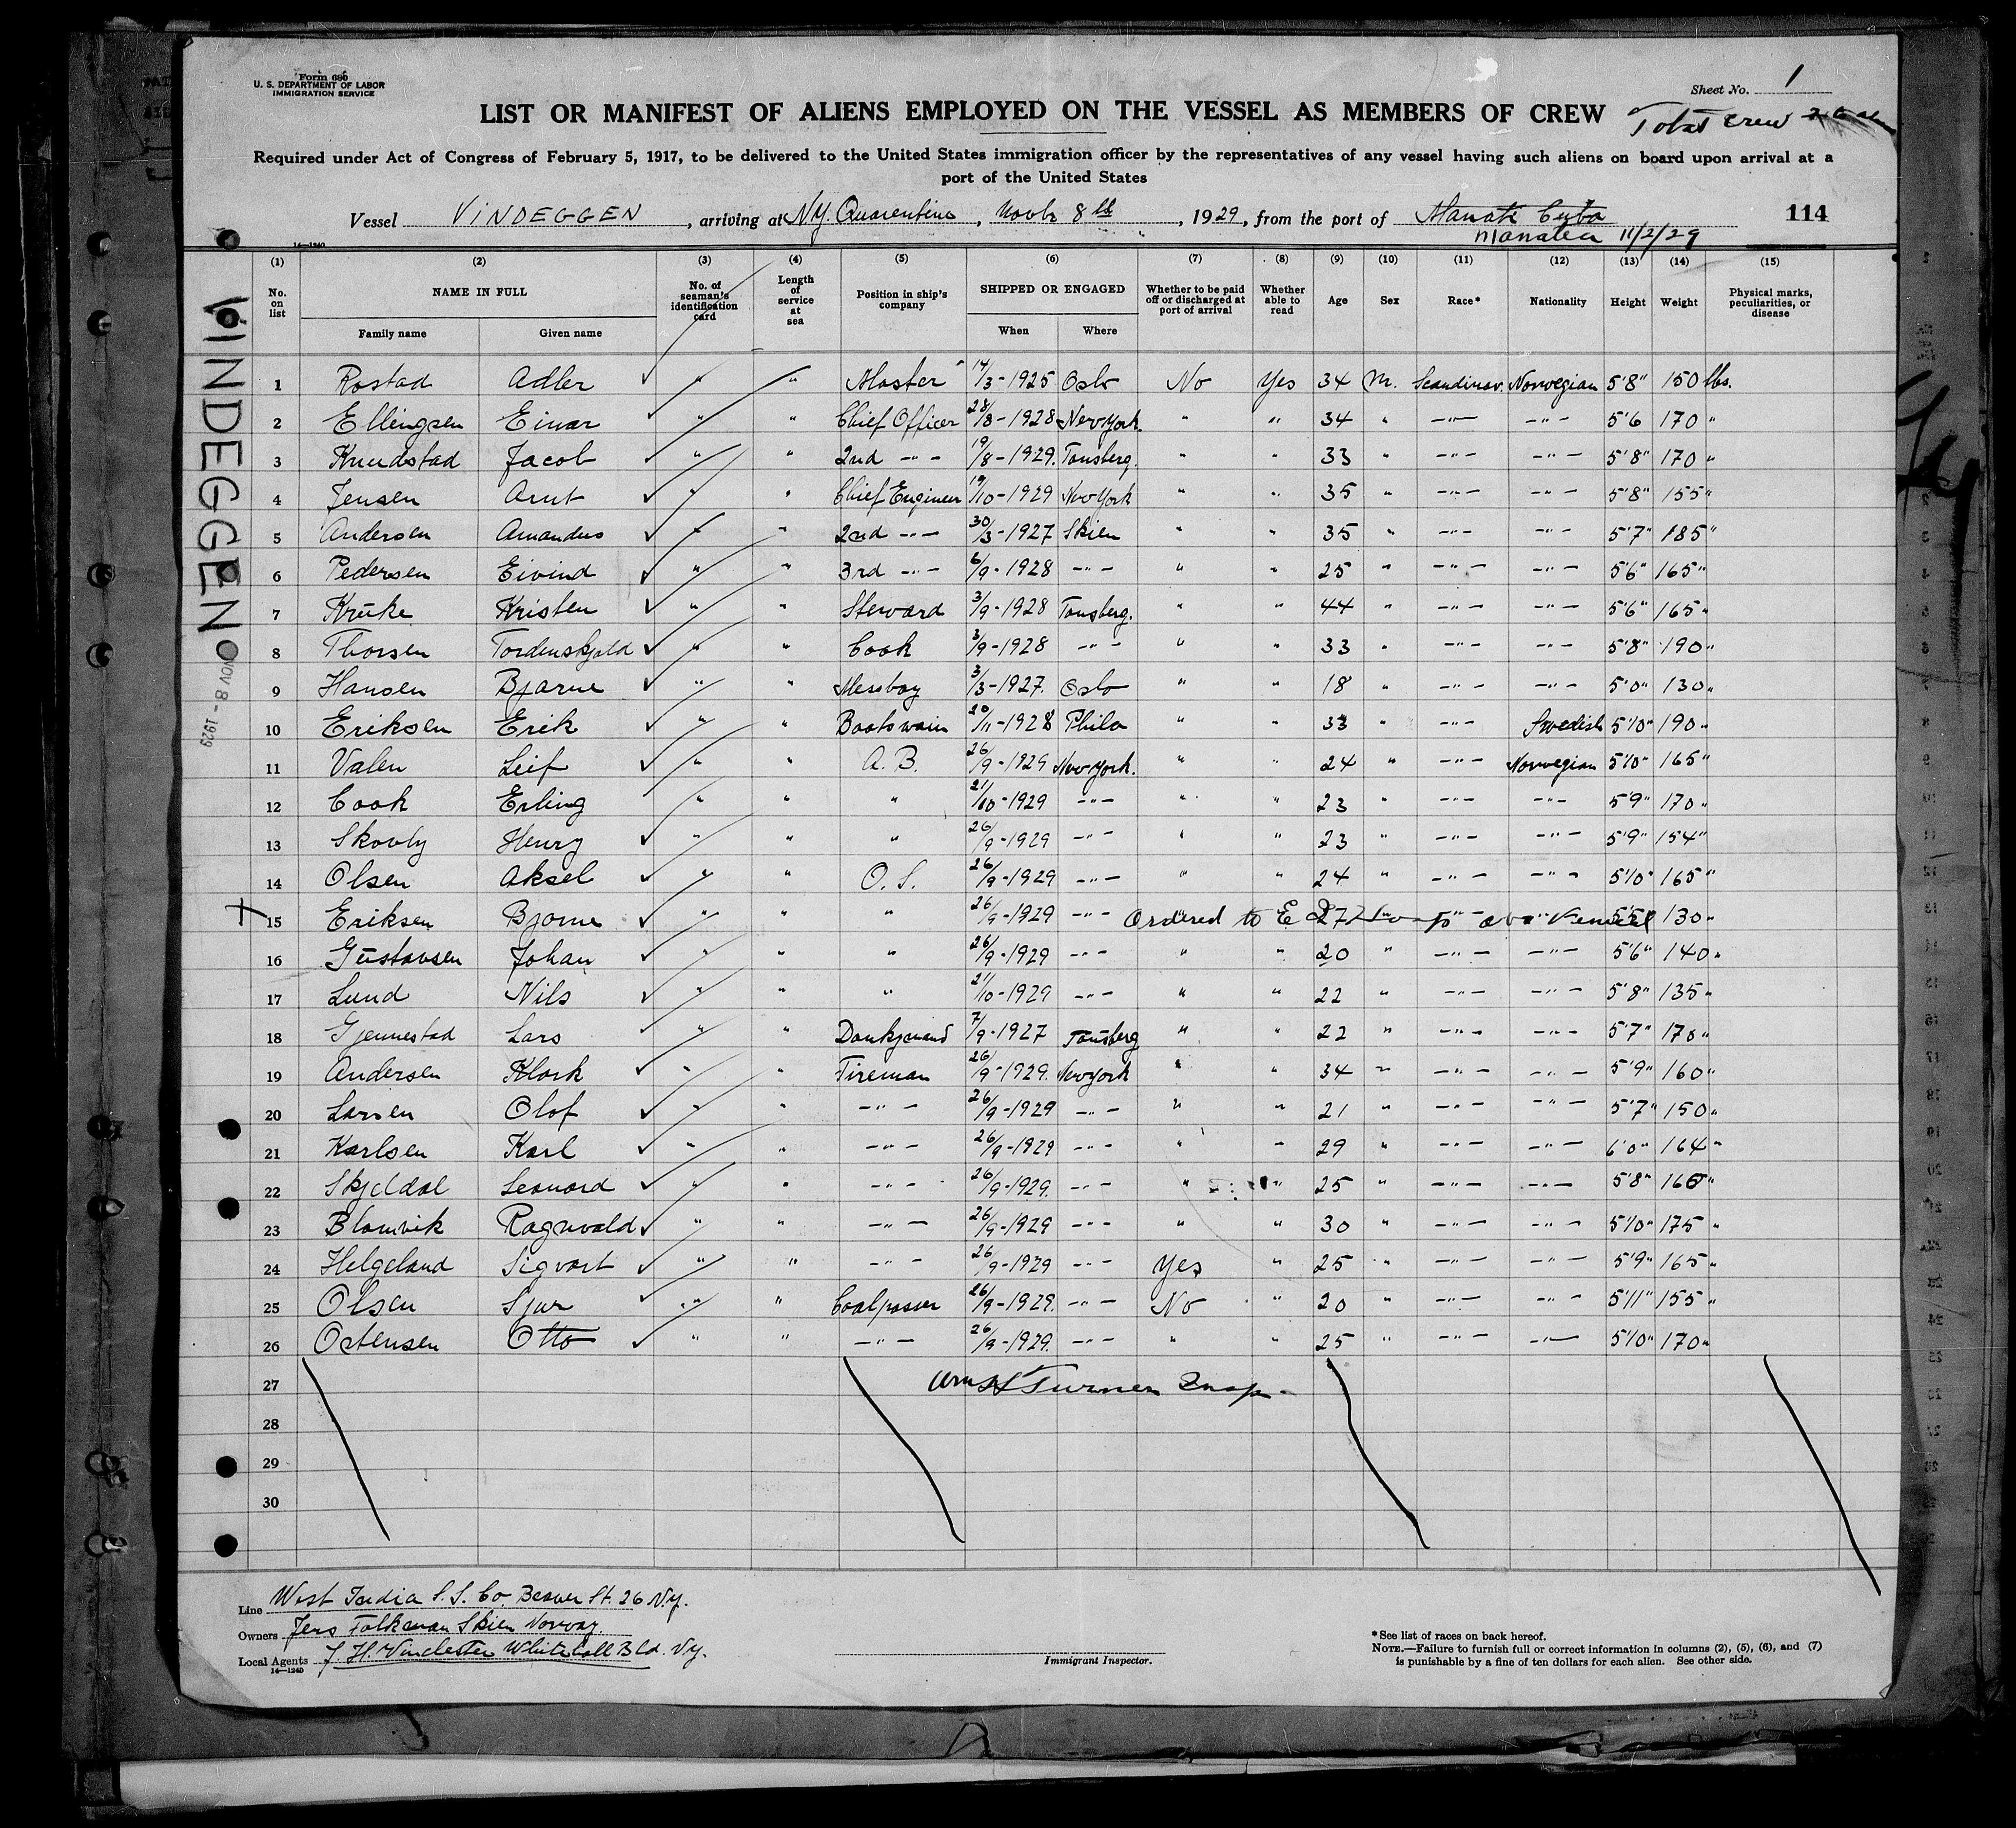 Form 680
U. S. DEPARTMENT OF LABOR
IMMIGRATION SERVICE
Sheet No. 1
LIST OR MANIFEST OF ALIENS EMPLOYED ON THE VESSEL AS MEMBERS OF CREW
Total crew
Required under Act of Congress of February 5, 1917, to be delivered to the United States immigration officer by the representatives of any vessel having such aliens on board upon arrival at a
port of the United States
Vessel VINDEGGEN, arriving at N.Y. Quarentine, Novbr 8th, 1929, from the port of Manati Cuba 114
Manatea 11/2/29
14—1240
(1) (2) (3) (4) (5) (6) (7) (8) (9) (10) (11) (12) (13) (14) (15)
No. on list NAME IN FULL Family name Given name No. of seaman's identification card Length of service at sea Position in ship's company SHIPPED OR ENGAGED When Where Whether to be paid off or discharged at port of arrival Whether able to read Age Sex Race* Nationality Height Weight Physical marks, peculiarities, or disease
VINDEGGEN
NOV 8 - 1929
1 Rostad Adler ✓ " " Master 14/3-1925 Oslo No Yes 34 M. Scandinav. Norwegian 5'8" 150 lbs.
2 Ellingsen Einar ✓ " " Chief Officer 28/8-1928 New York. " " 34 " -"- -"- 5'6 170 "
3 Knudstad Jacob ✓ " " 2nd -"- 19/8-1929. Tonsberg. " " 33 " -"- -"- 5'8" 170 "
4 Jensen Arnt ✓ " " Chief Engineer 19/10-1929 New York " " 35 " -"- -"- 5'8" 155 "
5 Andersen Amandus ✓ " " 2nd -"- 30/3-1927 Skien " " 35 " -"- -"- 5'7" 185 "
6 Pedersen Eivind ✓ " " 3rd -"- 6/9-1928 -"- " " 25 " -"- -"- 5'6" 165 "
7 Krüke Kristen ✓ " " Steward 3/9-1928 Tonsberg. " " 44 " -"- -"- 5'6" 165 "
8 Thorsen Tordenskjold ✓ " " Cook 3/9-1928 -"- " " 33 " -"- -"- 5'8" 190 "
9 Hansen Bjarne ✓ " " Messboy 3/3-1927. Oslo " " 18 " -"- -"- 5'0" 130 "
10 Eriksen Erik ✓ " " Bootswain 20/11-1928 Phila " " 33 " -"- Swedish 5'10" 190 "
11 Valen Leif ✓ " " A. B. 26/9-1929 New York. " " 24 " -"- Norwegian 5'10" 165 "
12 Cook Erling " " " 21/10-1929 -"- " " 23 " -"- -"- 5'9" 170 "
13 Skovly Henry ✓ " " " 26/9-1929 -"- " " 23 " -"- -"- 5'9" 154 "
14 Olsen Aksel ✓ " " O. S. 26/9-1929 -"- " " 24 " -"- -"- 5'10" 165 "
15 Eriksen Bjorne ✓ " " " 26/9-1929 -"- Ordered to E 27 130 "
16 Gustavsen Johan ✓ " " " 26/9-1929 -"- " " 20 " -"- -"- 5'6" 140 "
17 Lund Nils ✓ " " " 21/10-1929 -"- " " 22 " -"- -"- 5'8" 135 "
18 Gjennestad Lars ✓ " " Donkjmand 7/9-1927 Tonsberg " " 22 " -"- -"- 5'7" 170 "
19 Andersen Klork ✓ " " Fireman 26/9-1929. New York " " 34 " -"- -"- 5'9" 160 "
20 Larsen Olof ✓ " " -"- 26/9-1929 -"- " " 21 " -"- -"- 5'7" 150 "
21 Karlsen Karl ✓ " " -"- 26/9-1929 -"- " " 29 " -"- -"- 6'0" 164 "
22 Skjeldal Leonord ✓ " " -"- 26/9-1929. -"- " " 25 " -"- -"- 5'8" 165 "
23 Blomvik Ragnvald ✓ " " -"- 26/9-1929 -"- " " 30 " -"- -"- 5'10" 175 "
24 Helgeland Sigvart ✓ " " -"- 26/9-1929 -"- Yes " 25 " -"- -"- 5'9" 165 "
25 Olsen Sjur ✓ " " Coalpasser 26/9-1929. -"- No " 20 " -"- -"- 5'11" 155 "
26 Ostensen Otto ✓ " " -"- 26/9-1929. -"- " " 25 " -"- -"- 5'10" 170 "
27 Wm H Turner Insp.
28
29
30
Line West India S. S. Co. Beaver St. 26 N.y.
Owners Jens Folkman Skien Norway.
Local Agents J. H. Winchester Whitehall Bld. N.y.
14—1240
Immigrant Inspector.
*See list of races on back hereof.
NOTE.—Failure to furnish full or correct information in columns (2), (5), (6), and (7)
is punishable by a fine of ten dollars for each alien. See other side.